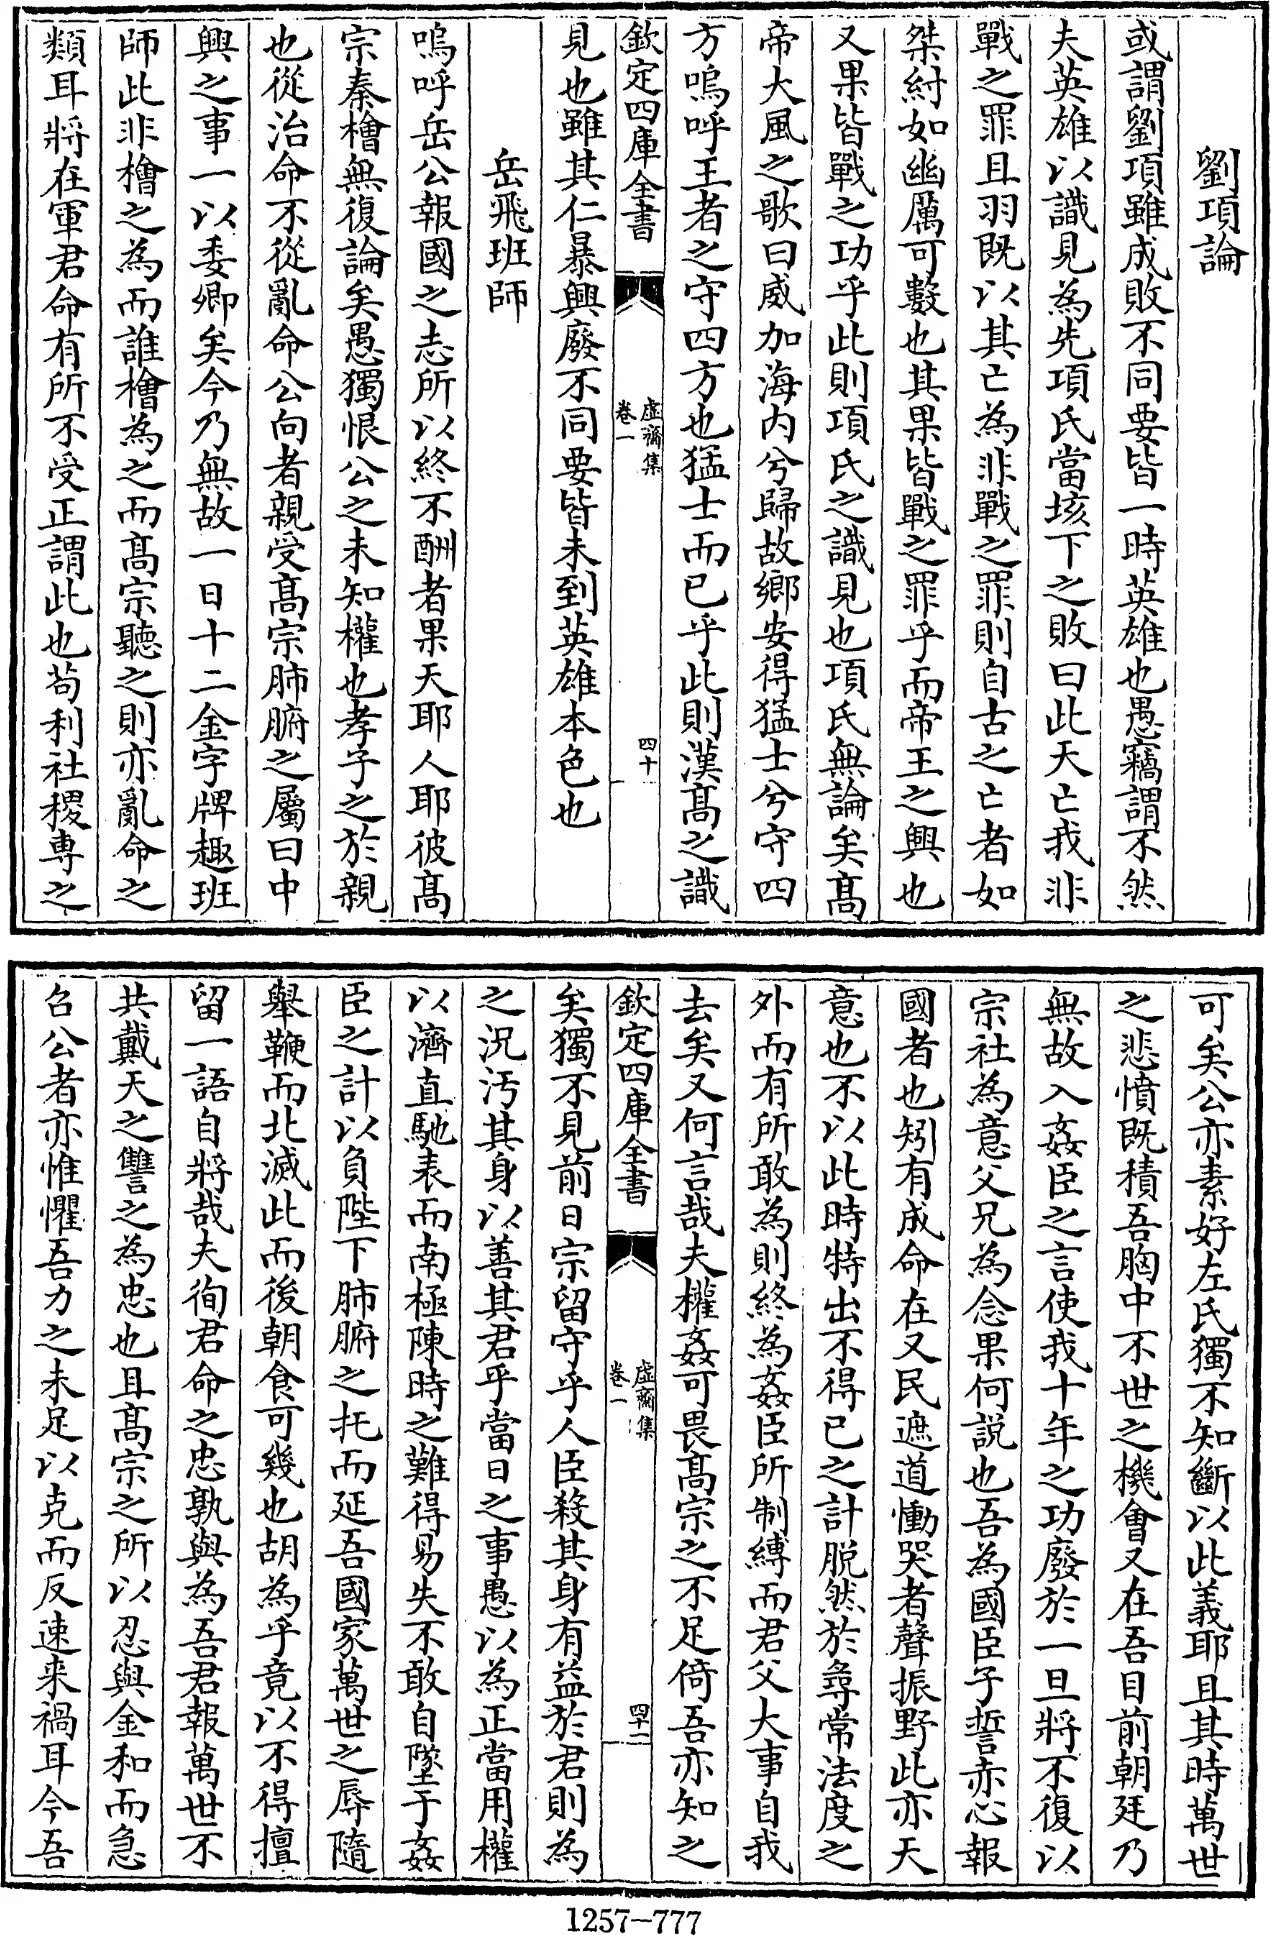 劉項論
或謂劉項雖成敗不同要皆一時英雄也愚竊謂不然
夫英雄以識見為先項氏當垓下之敗曰此天亡我非
戰之罪且羽既以其亡為非戰之罪則自古之亡者如
桀紂如幽厲可數也其果皆戰之罪乎而帝王之興也
又果皆戰之功乎此則項氏之識見也項氏無論矣髙
帝大風之歌曰威加海内兮歸故鄉安得猛士兮守四
方嗚呼王者之守四方也猛士而已乎此則漢髙之識
欽定四庫全書
虚齋集
卷一
四十
見也雖其仁暴興廢不同要皆未到英雄本色也
岳飛班師
嗚呼岳公報國之志所以終不酬者果天耶人耶彼髙
宗秦檜無復論矣愚獨恨公之未知權也孝子之於親
也從治命不從亂命公向者親受髙宗肺腑之屬曰中
興之事一以委卿矣今乃無故一日十二金字牌趣班
師此非檜之為而誰檜為之而髙宗聽之則亦亂命之
類耳將在軍君命有所不受正謂此也茍利社稷専之
可矣公亦素好左氏獨不知斷以此義耶且其時萬世
之悲憤既積吾胸中不世之機會又在吾目前朝廷乃
無故入姦臣之言使我十年之功廢於一旦將不復以
宗社為意父兄為念果何説也吾為國臣子誓赤心報
國者也矧有成命在又民遮道慟哭者聲振野此亦天
意也不以此時特出不得已之計脱然於尋常法度之
外而有所敢為則終為姦臣所制縛而君父大事自我
去矣又何言哉夫權姦可畏髙宗之不足倚吾亦知之
欽定四庫全書
虚齋集
卷一
四十一
矣獨不見前日宗留守乎人臣殺其身有益於君則為
之況汚其身以善其君乎當日之事愚以為正當用權
以濟直馳表而南極陳時之難得易失不敢自墜于姦
臣之計以負陛下肺腑之托而延吾國家萬世之辱隨
舉鞭而北滅此而後朝食可幾也胡為乎竟以不得擅
留一語自將哉夫徇君命之忠孰與為吾君報萬世不
共戴天之讐之為忠也且髙宗之所以忍與金和而急
召公者亦惟懼吾力之未足以克而反速来禍耳今吾
1257-777